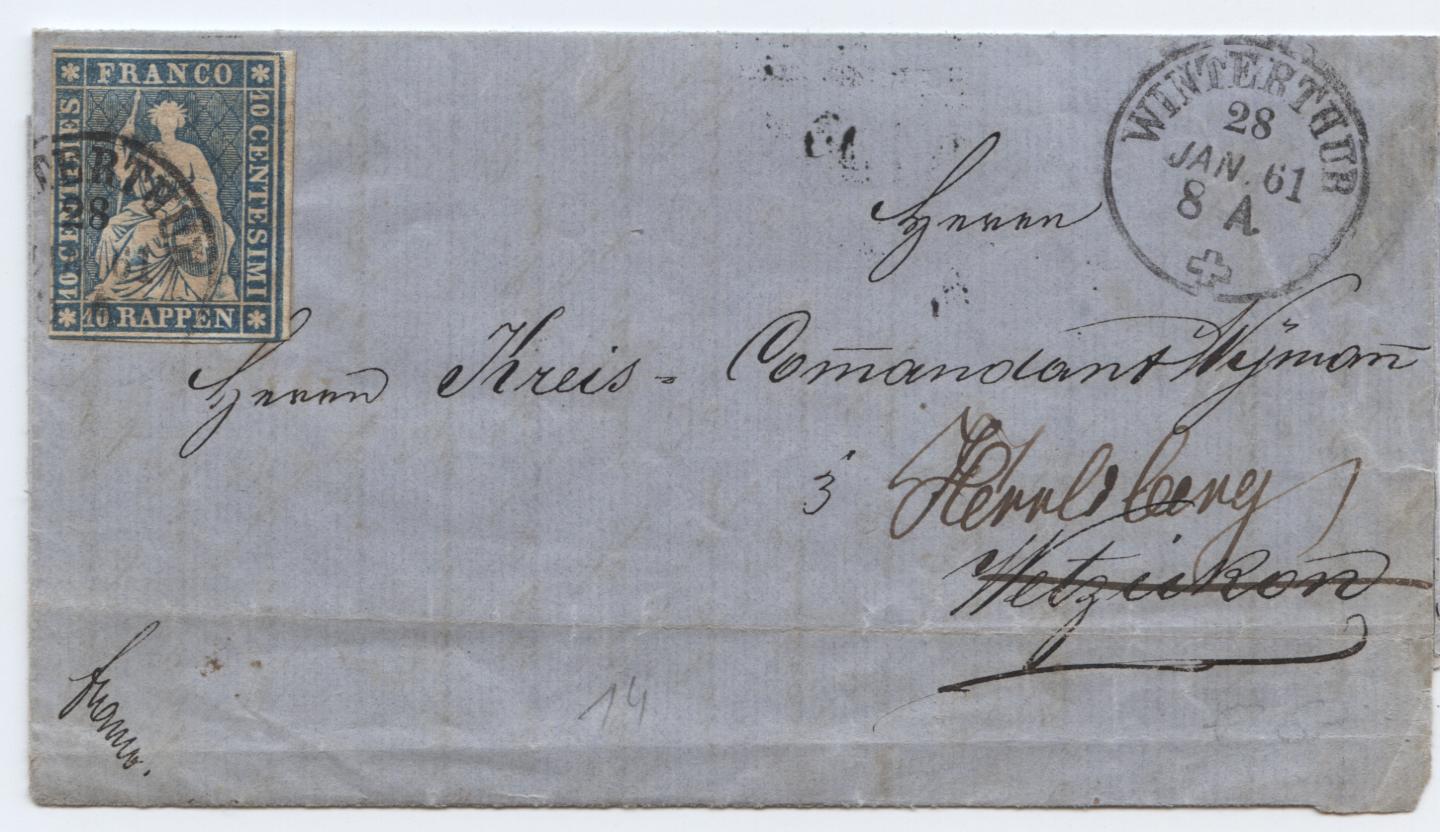 FRANCO
10 CENTIMES
10 CENTESIMI
10 RAPPEN
ERTHUR
28
61
WINTERTHUR
28
JAN. 61
8 A.
Herrn
Herrn Kreis = Com̄andant Wÿman̄
Herrliberg
Wetzikon
franco.
14